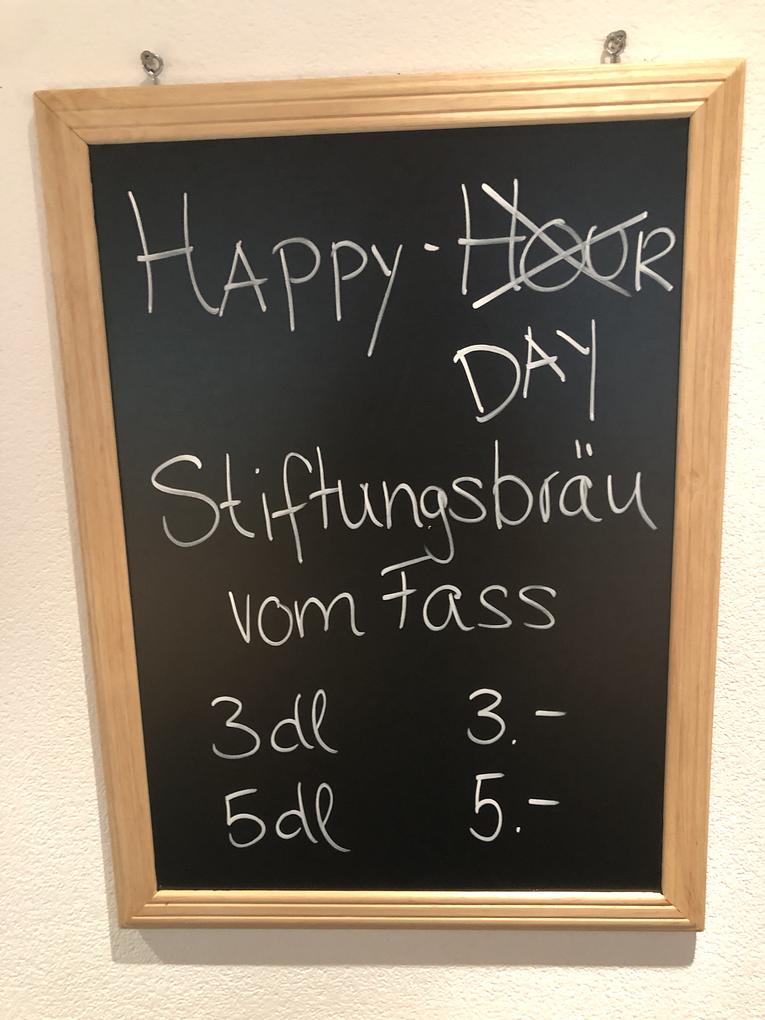 HAPPY-HOUR
DAY
Stiftungsbräu
vom Fass
3dl 3.-
5dl 5.-